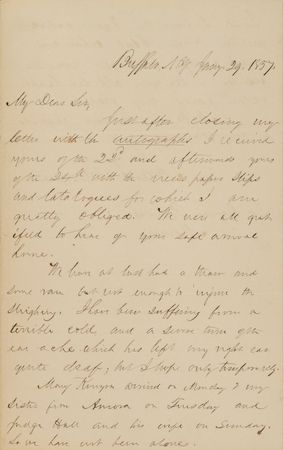 Buffalo, N.Y. Jany. 29. 1857.
My Dear Sir,
Just after closing my
letter with the autographs I received
yours of the 22d and afterwards yours
of the 24th with the news papers slips
and catalogues for which I am
greatly obliged. We were all grat
ified to hear of your safe arrival
home.
We have at last had a thaw and
some rain but not enough to injure the
sleighing. I have been suffering from a
terrible cold and a severe turn of the
ear ache which has left my right ear
quite deaf; but I hope only temporarily.
Mary Kenyon arrived on Monday & my
sister from Aurora on Tuesday and
Judge Hall and his wife on Sunday.
So we have not been alone.